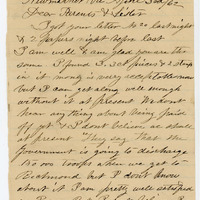 Dear Parents & Sister
I got your letter of 20 last night
& 2 papers night before last
I am well & am glad you are the
same I found 5. 3ct pieces & 2 stamp
in it money is very
but I can get along well enough
without it at Present We dont
hear any thing about being paid
off yet & I dont believe we shall
at present They say that the
Government is going to discharge
troops when we get to
Richmond but I dont know
about it I am pretty well satisfied